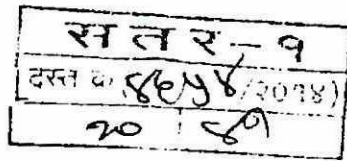 स त र - १
दस्त क्र. ४८५४/२०१४)
२० ४१